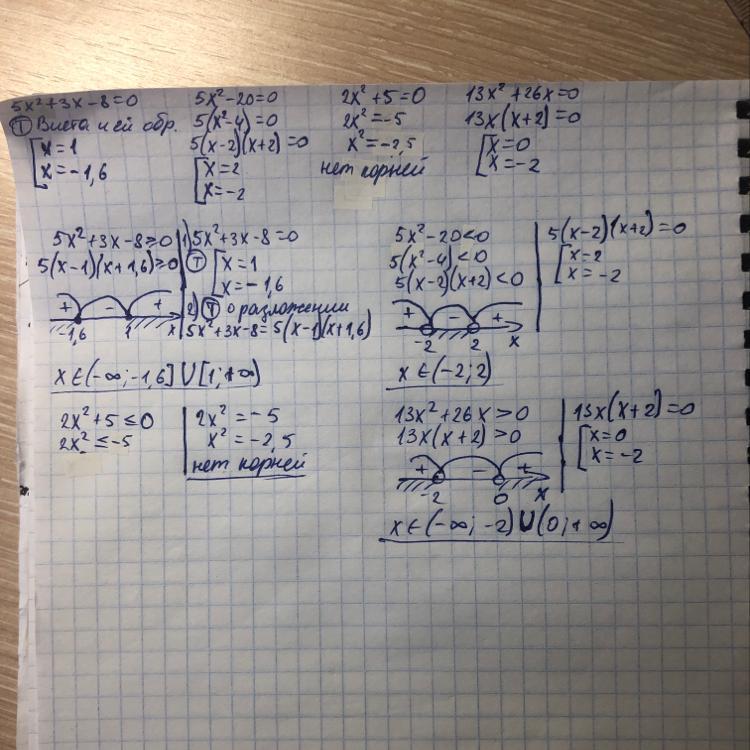 5x²+3x-8=0
Ⓣ Виета и ей обр.
[x=1
x=-1,6
5x²-20=0
5(x²-4)=0
5(x-2)(x+2)=0
[x=2
x=-2
2x²+5=0
2x²=-5
x²=-2,5
нет корней
13x²+26x=0
13x(x+2)=0
[x=0
x=-2
5x²+3x-8≥0
5(x-1)(x+1,6)≥0
+ - +
-1,6 1 x
x∈(-∞;-1,6]∪[1;+∞)
1) 5x²+3x-8=0
Ⓣ [x=1
x=-1,6
2) Ⓣ о разложении
5x²+3x-8=5(x-1)(x+1,6)
5x²-20<0
5(x²-4)<0
5(x-2)(x+2)<0
+ - +
-2 2 x
x∈(-2;2)
5(x-2)(x+2)=0
[x=2
x=-2
2x²+5≤0
2x²≤-5
2x²=-5
x²=-2,5
нет корней
13x²+26x>0
13x(x+2)>0
+ - +
-2 0 x
x∈(-∞;-2)∪(0;+∞)
13x(x+2)=0
[x=0
x=-2